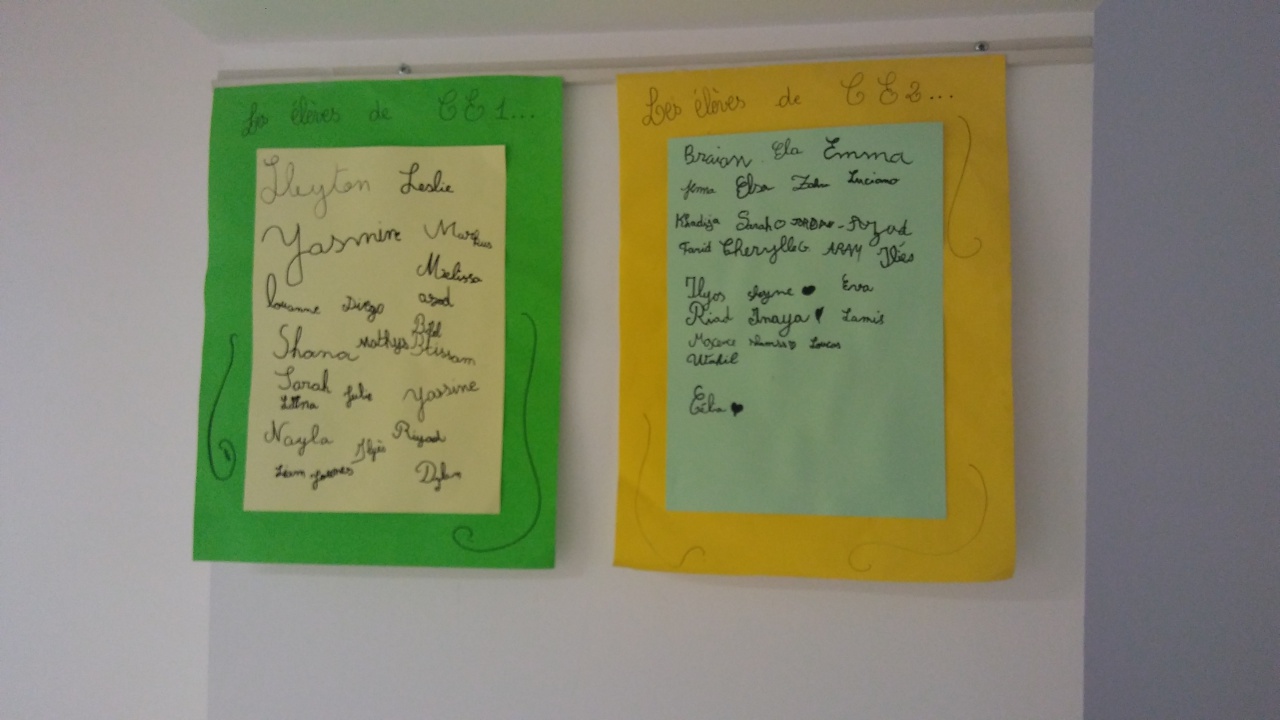 Les élèves de CE1...
Lleyton Leslie
Yasmine Markus
Melissa
Louanne Diego azad
Shana Mathys Btissam
Sarah
Lilina Julie Yassine
Nayla Ilyès Riyad
Liam Dylan
Les élèves de CE2...
Braian Ela Emma
Jema Elsa Luciano
Khadija Sarah JORDAN - Azad
Farid Cheryllee ARAM Iliès
Ilyes Eva
Riad Inaya Lamis
Maxence Loucas
Célia